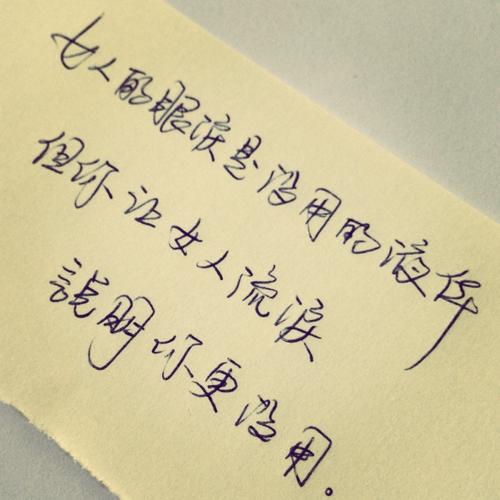 女人的眼淚是没用的液体
但你让女人流淚
説明你更没用。